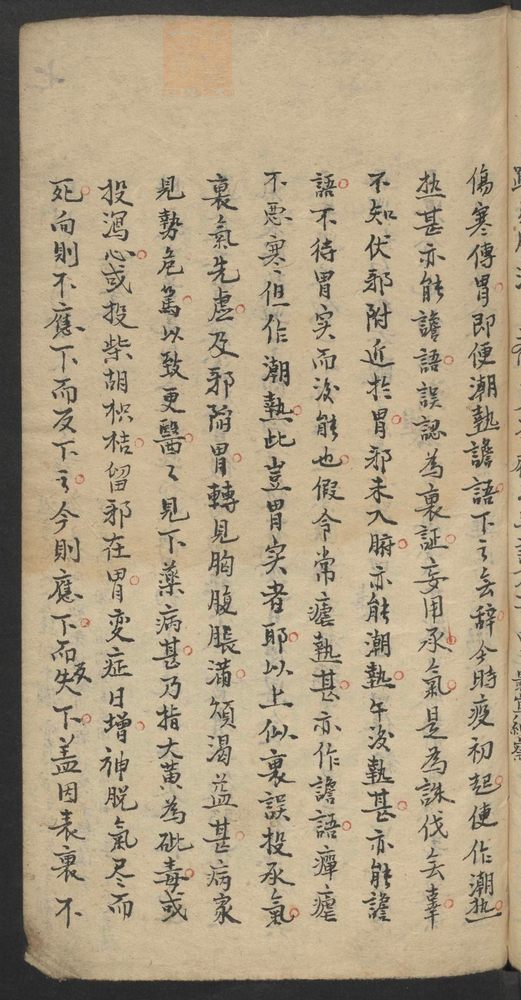 傷寒傳胃即便潮熱譫語下之無辞今時疫初起便作潮热
热甚亦能譫語誤認為裏証妄用承氣是為誅伐無辜
不知伏邪附近於胃邪未入腑亦能潮熱午後熱甚亦能譫
語不待胃实而後能也假令常瘧熱甚亦作譫語癉瘧
不惡寒但作潮熱此豈胃实者耶以上似裏誤投承氣
裏氣先虛及邪陥胃轉見胸腹脹滿煩渴益甚病家
見勢危篤以致更醫々見下藥病甚乃指大黄為砒毒或
投瀉心或投柴胡枳桔留邪在胃変症日增神脱氣尽而
死向則不應下而反下之今則應下而反失下盖因表裏不